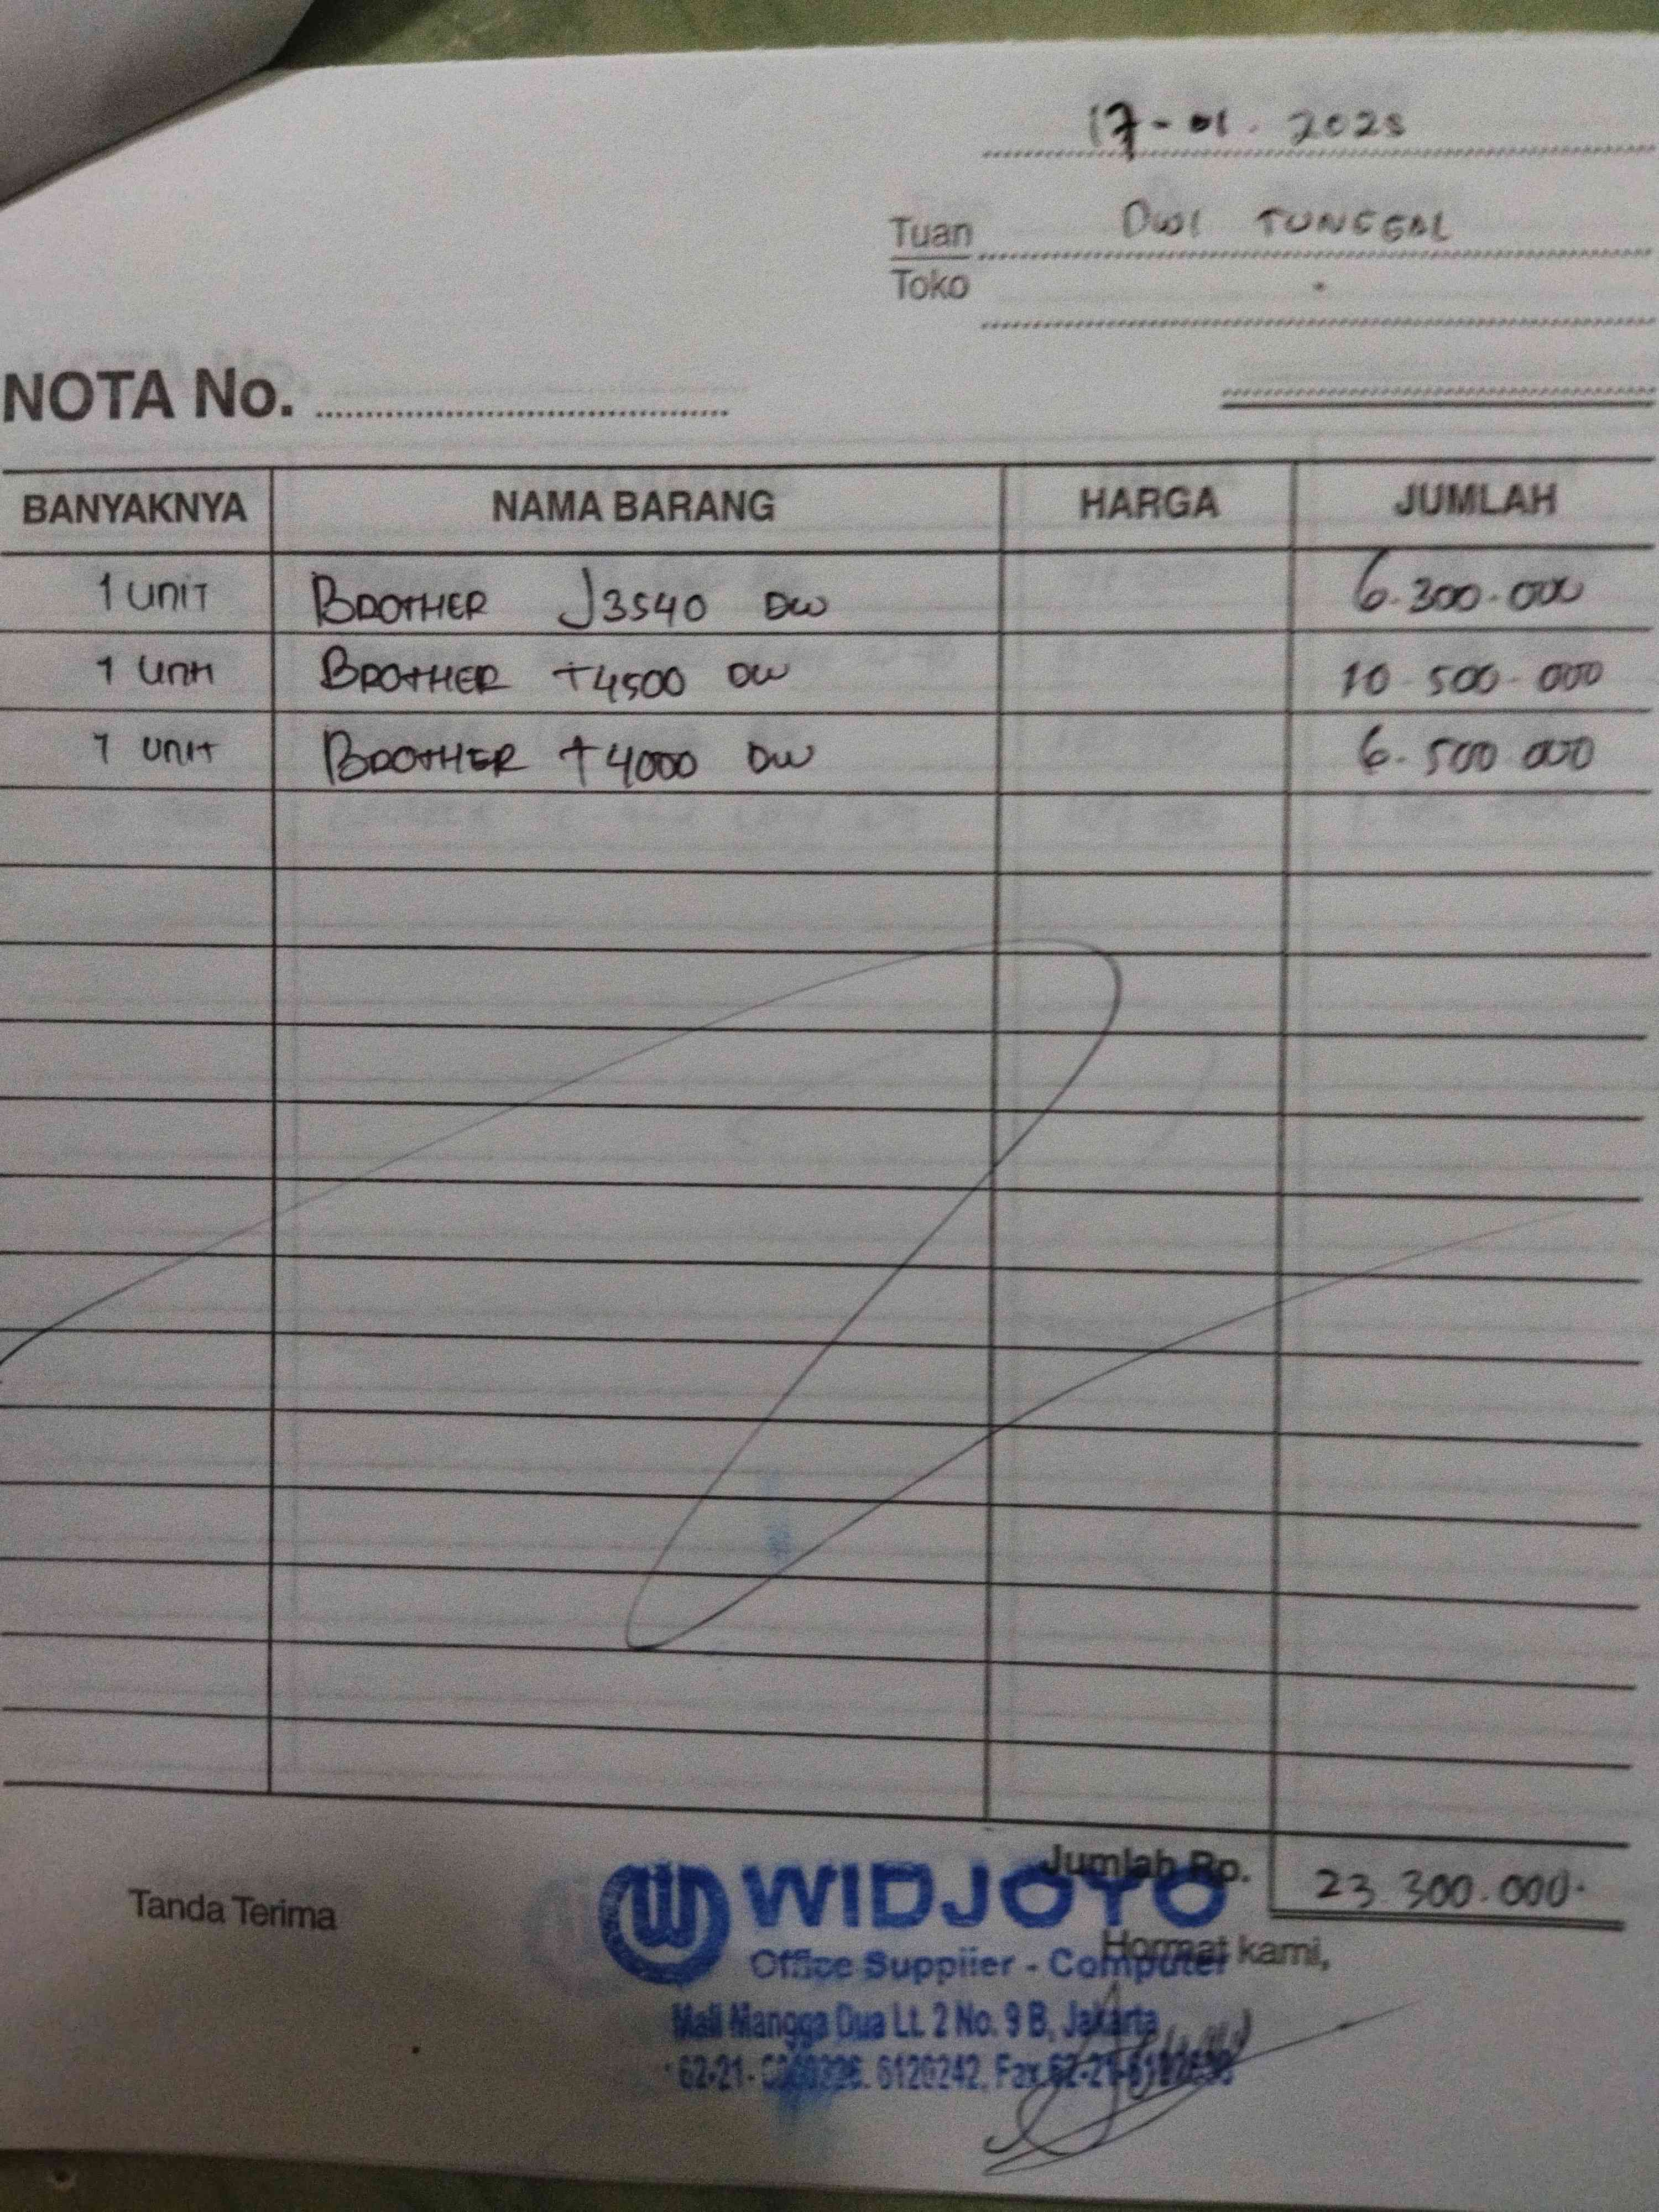 17-01-2025
Tuan DWI TUNGGAL
Toko
NOTA No.
BANYAKNYA NAMA BARANG HARGA JUMLAH
1 UNIT BROTHER J3540 DW 6.300.000
1 UNIT BROTHER T4500 DW 10.500.000
1 UNIT BROTHER T4000 DW 6.500.000
Jumlah Rp. 23.300.000.
Tanda Terima
Hormat kami,
WIDJOYO
Office Supplier - Computer
Mall Mangga Dua Lt. 2 No. 9 B, Jakarta
62-21- 6120242, Fax 62-21-